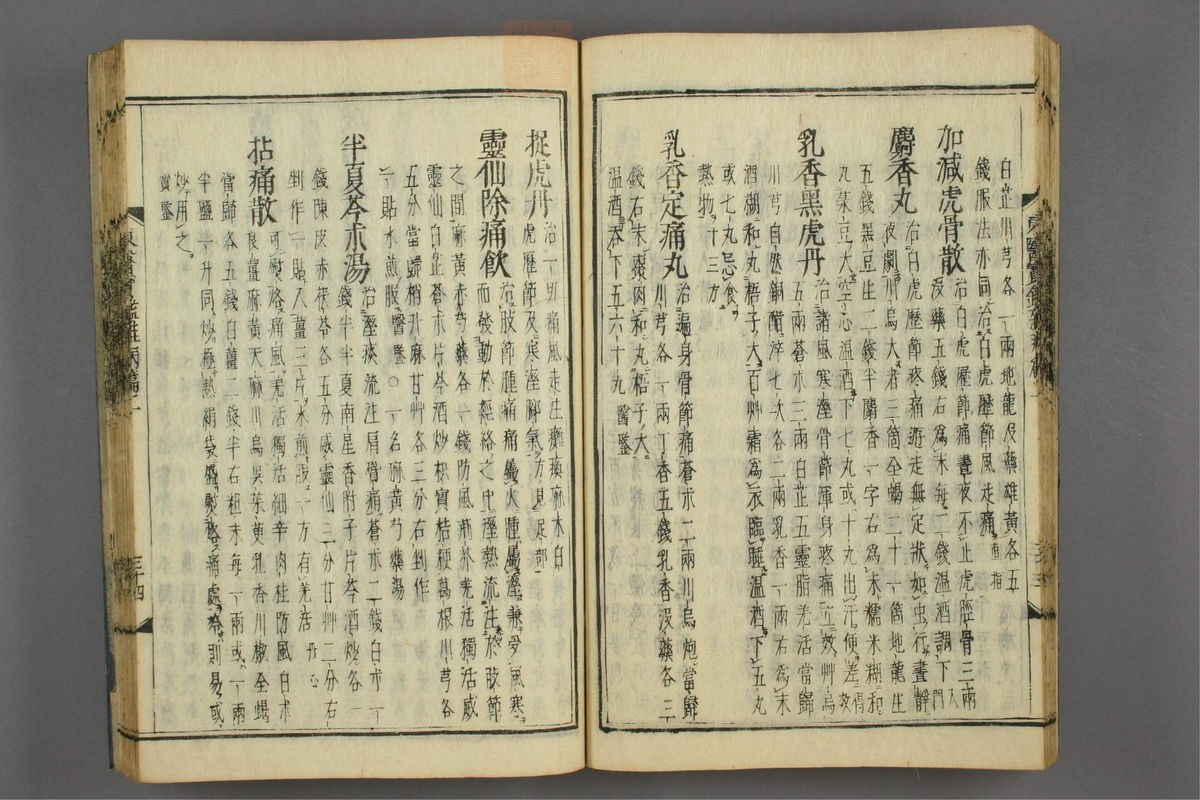 白芷川芎各一兩地龍沒藥雄黃各五
錢服法亦同治白虎歷節風走痛直指
加減虎骨散治白虎歷節痛晝夜不止虎脛骨三兩
沒藥五錢右爲末每二錢溫酒調下入門
麝香丸治白虎歷節疼痛遊走無定狀如虫行晝靜
夜劇川烏大者三箇全蝎二十一箇地龍生
五錢黑豆生二錢半麝香一字右爲末糯米糊和
丸菉豆大空心溫酒下七丸或十丸出汗便差
乳香黑虎丹治諸風寒溼骨節渾身疼痛立效艸烏
五兩蒼朮三兩白芷五靈脂羌活當歸
川芎自然銅醋淬七次各二兩乳香一兩右爲末
酒糊和丸梧子大百艸霜爲衣臨睡溫酒下五丸
或七丸忌食
熱物十三方
乳香定痛丸治遍身骨節痛蒼朮二兩川烏炮當歸
川芎各一兩丁香五錢乳香沒藥各三
錢右末棗肉和丸梧子大
溫酒吞下五六十丸醫鑒
捉虎丹治一切痛風走注癱瘓麻木白
虎歷節及寒溼脚氣方見足部
靈仙除痛飮治肢節腫痛痛屬火腫屬溼兼受風寒
而發動於經絡之中溼熱流注於肢節
之間麻黃赤芍藥各一錢防風荊芥羌活獨活威
靈仙白芷蒼朮片芩酒炒枳實桔梗葛根川芎各
五分當歸梢升麻甘艸各三分右剉作
一貼水煎服醫鑒○一名麻黃芍藥湯
半夏芩朮湯治溼痰流注肩臂痛蒼朮二錢白朮一
錢半半夏南星香附子片芩酒炒各一
錢陳皮赤茯苓各五分威靈仙三分甘艸二分右
剉作一貼入薑三片水煎服一方有羌活丹心
拈痛散可熨烙痛風羌活獨活細辛肉桂防風白朮
良薑麻黃天麻川烏吳茱萸乳香川椒全蝎
當歸各五錢白薑二錢半右粗末每一兩或一兩
半鹽一升同炒極熱絹袋盛熨烙痛處冷則易或
炒用之
寶鑒
東醫寶鑑雜病篇二
三十四